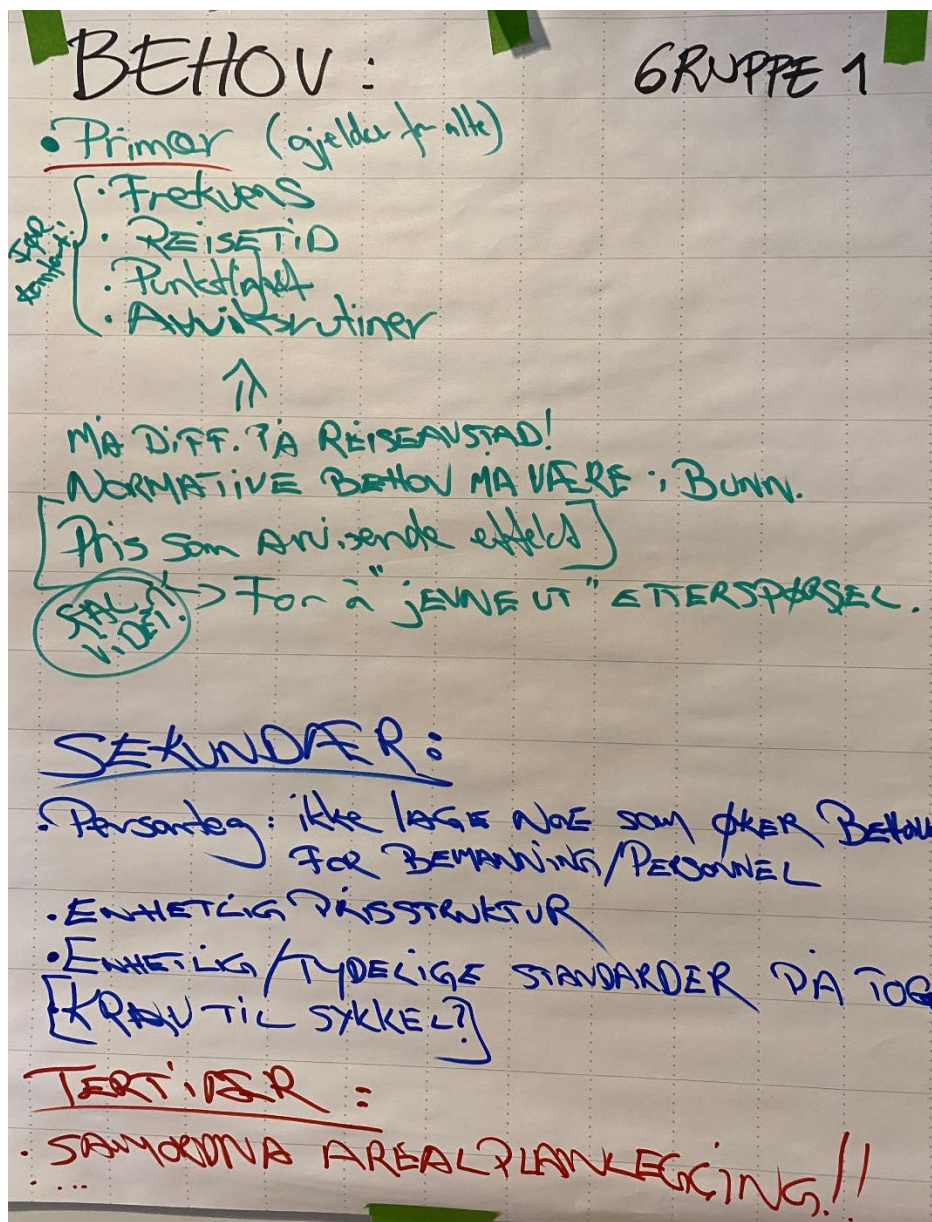 BEHOV: GRUPPE 1
• Primær (gjelder for alle)
• Frekvens
• REISETID
• Punktlighet
• Avviksrutiner
MÅ DIFF. PÅ REISEAVSTAD!
NORMATIVE BEHOV MÅ VÆRE i BUNN.
[Pris som avvisende effekt]
SKAL VI DET? → For å "jEVNE UT" ETTERSPØRSEL.
SEKUNDÆR:
• Persontog: ikke lAGE NOE som ØKER BEHOV
FOR BEMANNING/PERSONNEL
• ENHETLIG PRISSTRUKTUR
• ENHETLIG/TYDELIGE STANDARDER PÅ TOG
[KRAV TIL SYKKEL?]
TERTIÆR:
• SAMORDNA AREALPLANLEGGING!!
....